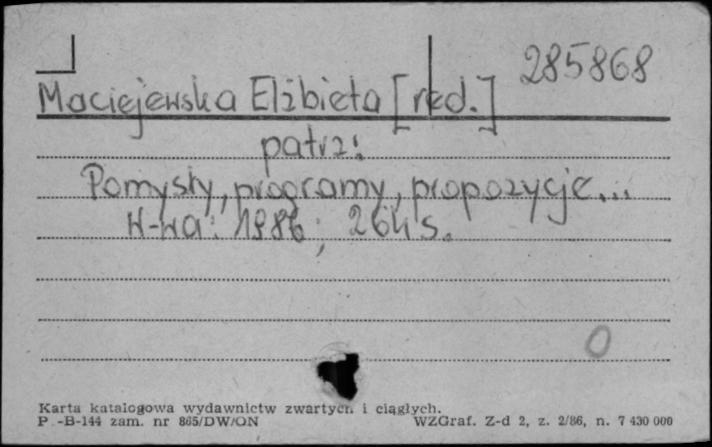 285868
Maciejewska Elżbieta [red.]
patrz:
Pomysły, programy, propozycje...
W-wa: 1986; 264 s.
0
Karta katalogowa wydawnictw zwartych i ciągłych.
P.-B-144 zam. nr 865/DW/ON WZGraf. Z-d 2, z. 2/86, n. 7 430 000